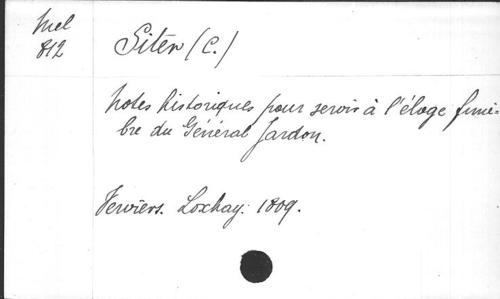 Mel
812
Siten (C.)
Notes historiques pour servir à l'éloge funè-
bre du Général Jardon.
Verviers. Loxhay: 1809.